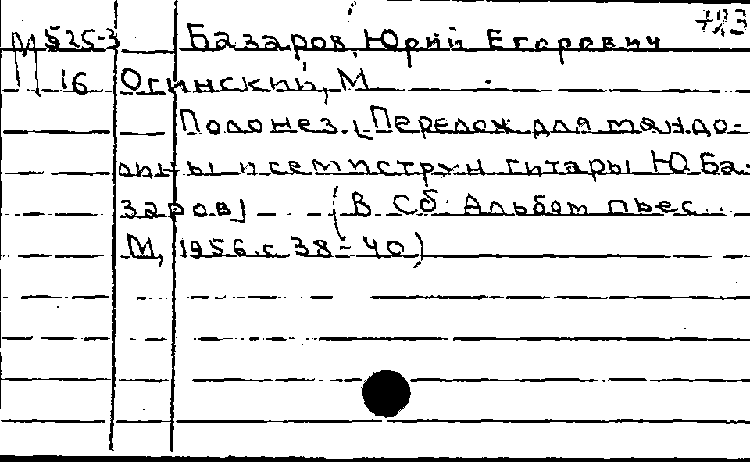 М 525-3 Базаров, Юрий Егорович
16 Огинский, М
Полонез. [Перелож для мандо-
лины и семиструн гитары Ю. Ба-
заров] (В сб. Альбом пьес..
М, 1956. с 38-40)